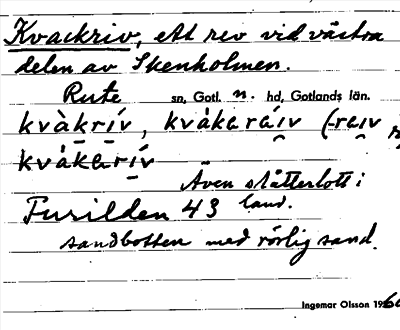 Kvackriv, ett rev vid västra
delen av Skenholmen.
Rute sn, Gotl. n. hd, Gotlands län.
kvàkrív, kvàkaráiv (-raiv
kvàkarív
Även slåtterlott i
Furilden 43 land.
sandbotten med rörlig sand.
Ingemar Olsson 1960